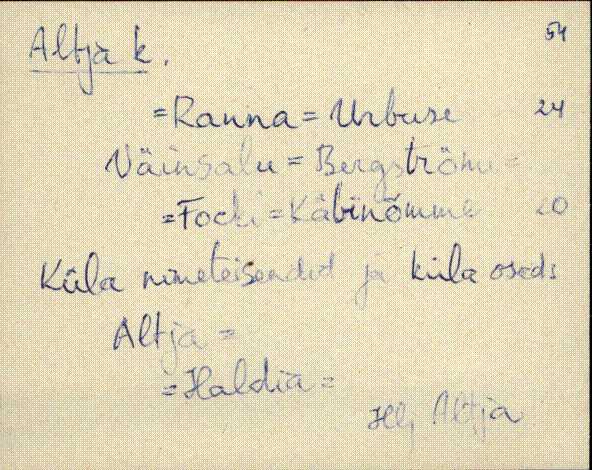 Altja k. 54
=Ranna=Urbuse 24
Väinsalu = Bergströmi =
=Focki=Käbinõmme 20
Küla nimeteisendid ja küla osad:
Altja =
=Haldia=
Hlj Altja